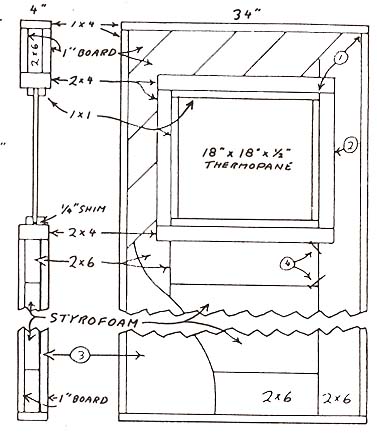 4"
34"
1 x 4
2 x 6
1" BOARD
2 x 4
1 x 1
1
2
"
18" x 18" x ½"
THERMOPANE
¼" SHIM
2 x 4
2 x 6
4
STYROFOAM
3
1" BOARD
2 x 6
2 x 6